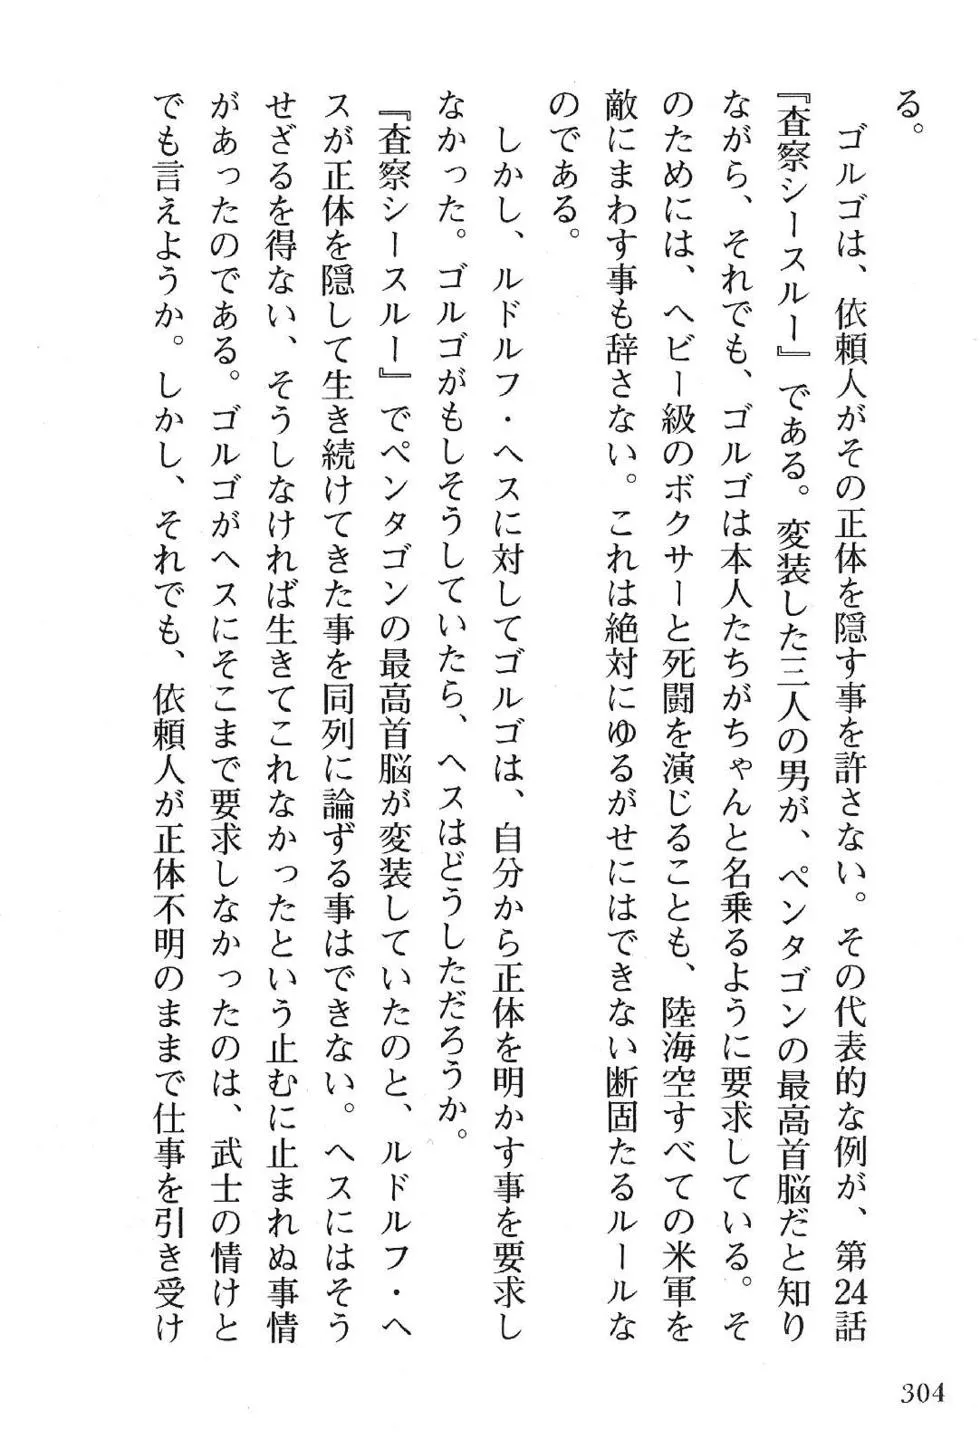 る。
　ゴルゴは、依頼人がその正体を隠す事を許さない。その代表的な例が、第24話
『査察シースルー』である。変装した三人の男が、ペンタゴンの最高首脳だと知り
ながら、それでも、ゴルゴは本人たちがちゃんと名乗るように要求している。そ
のためには、ヘビー級のボクサーと死闘を演じることも、陸海空すべての米軍を
敵にまわす事も辞さない。これは絶対にゆるがせにはできない断固たるルールな
のである。
　しかし、ルドルフ・ヘスに対してゴルゴは、自分から正体を明かす事を要求し
なかった。ゴルゴがもしそうしていたら、ヘスはどうしただろうか。
『査察シースルー』でペンタゴンの最高首脳が変装していたのと、ルドルフ・ヘ
スが正体を隠して生き続けてきた事を同列に論ずる事はできない。ヘスにはそう
せざるを得ない、そうしなければ生きてこれなかったという止むに止まれぬ事情
があったのである。ゴルゴがヘスにそこまで要求しなかったのは、武士の情けと
でも言えようか。しかし、それでも、依頼人が正体不明のままで仕事を引き受け
304